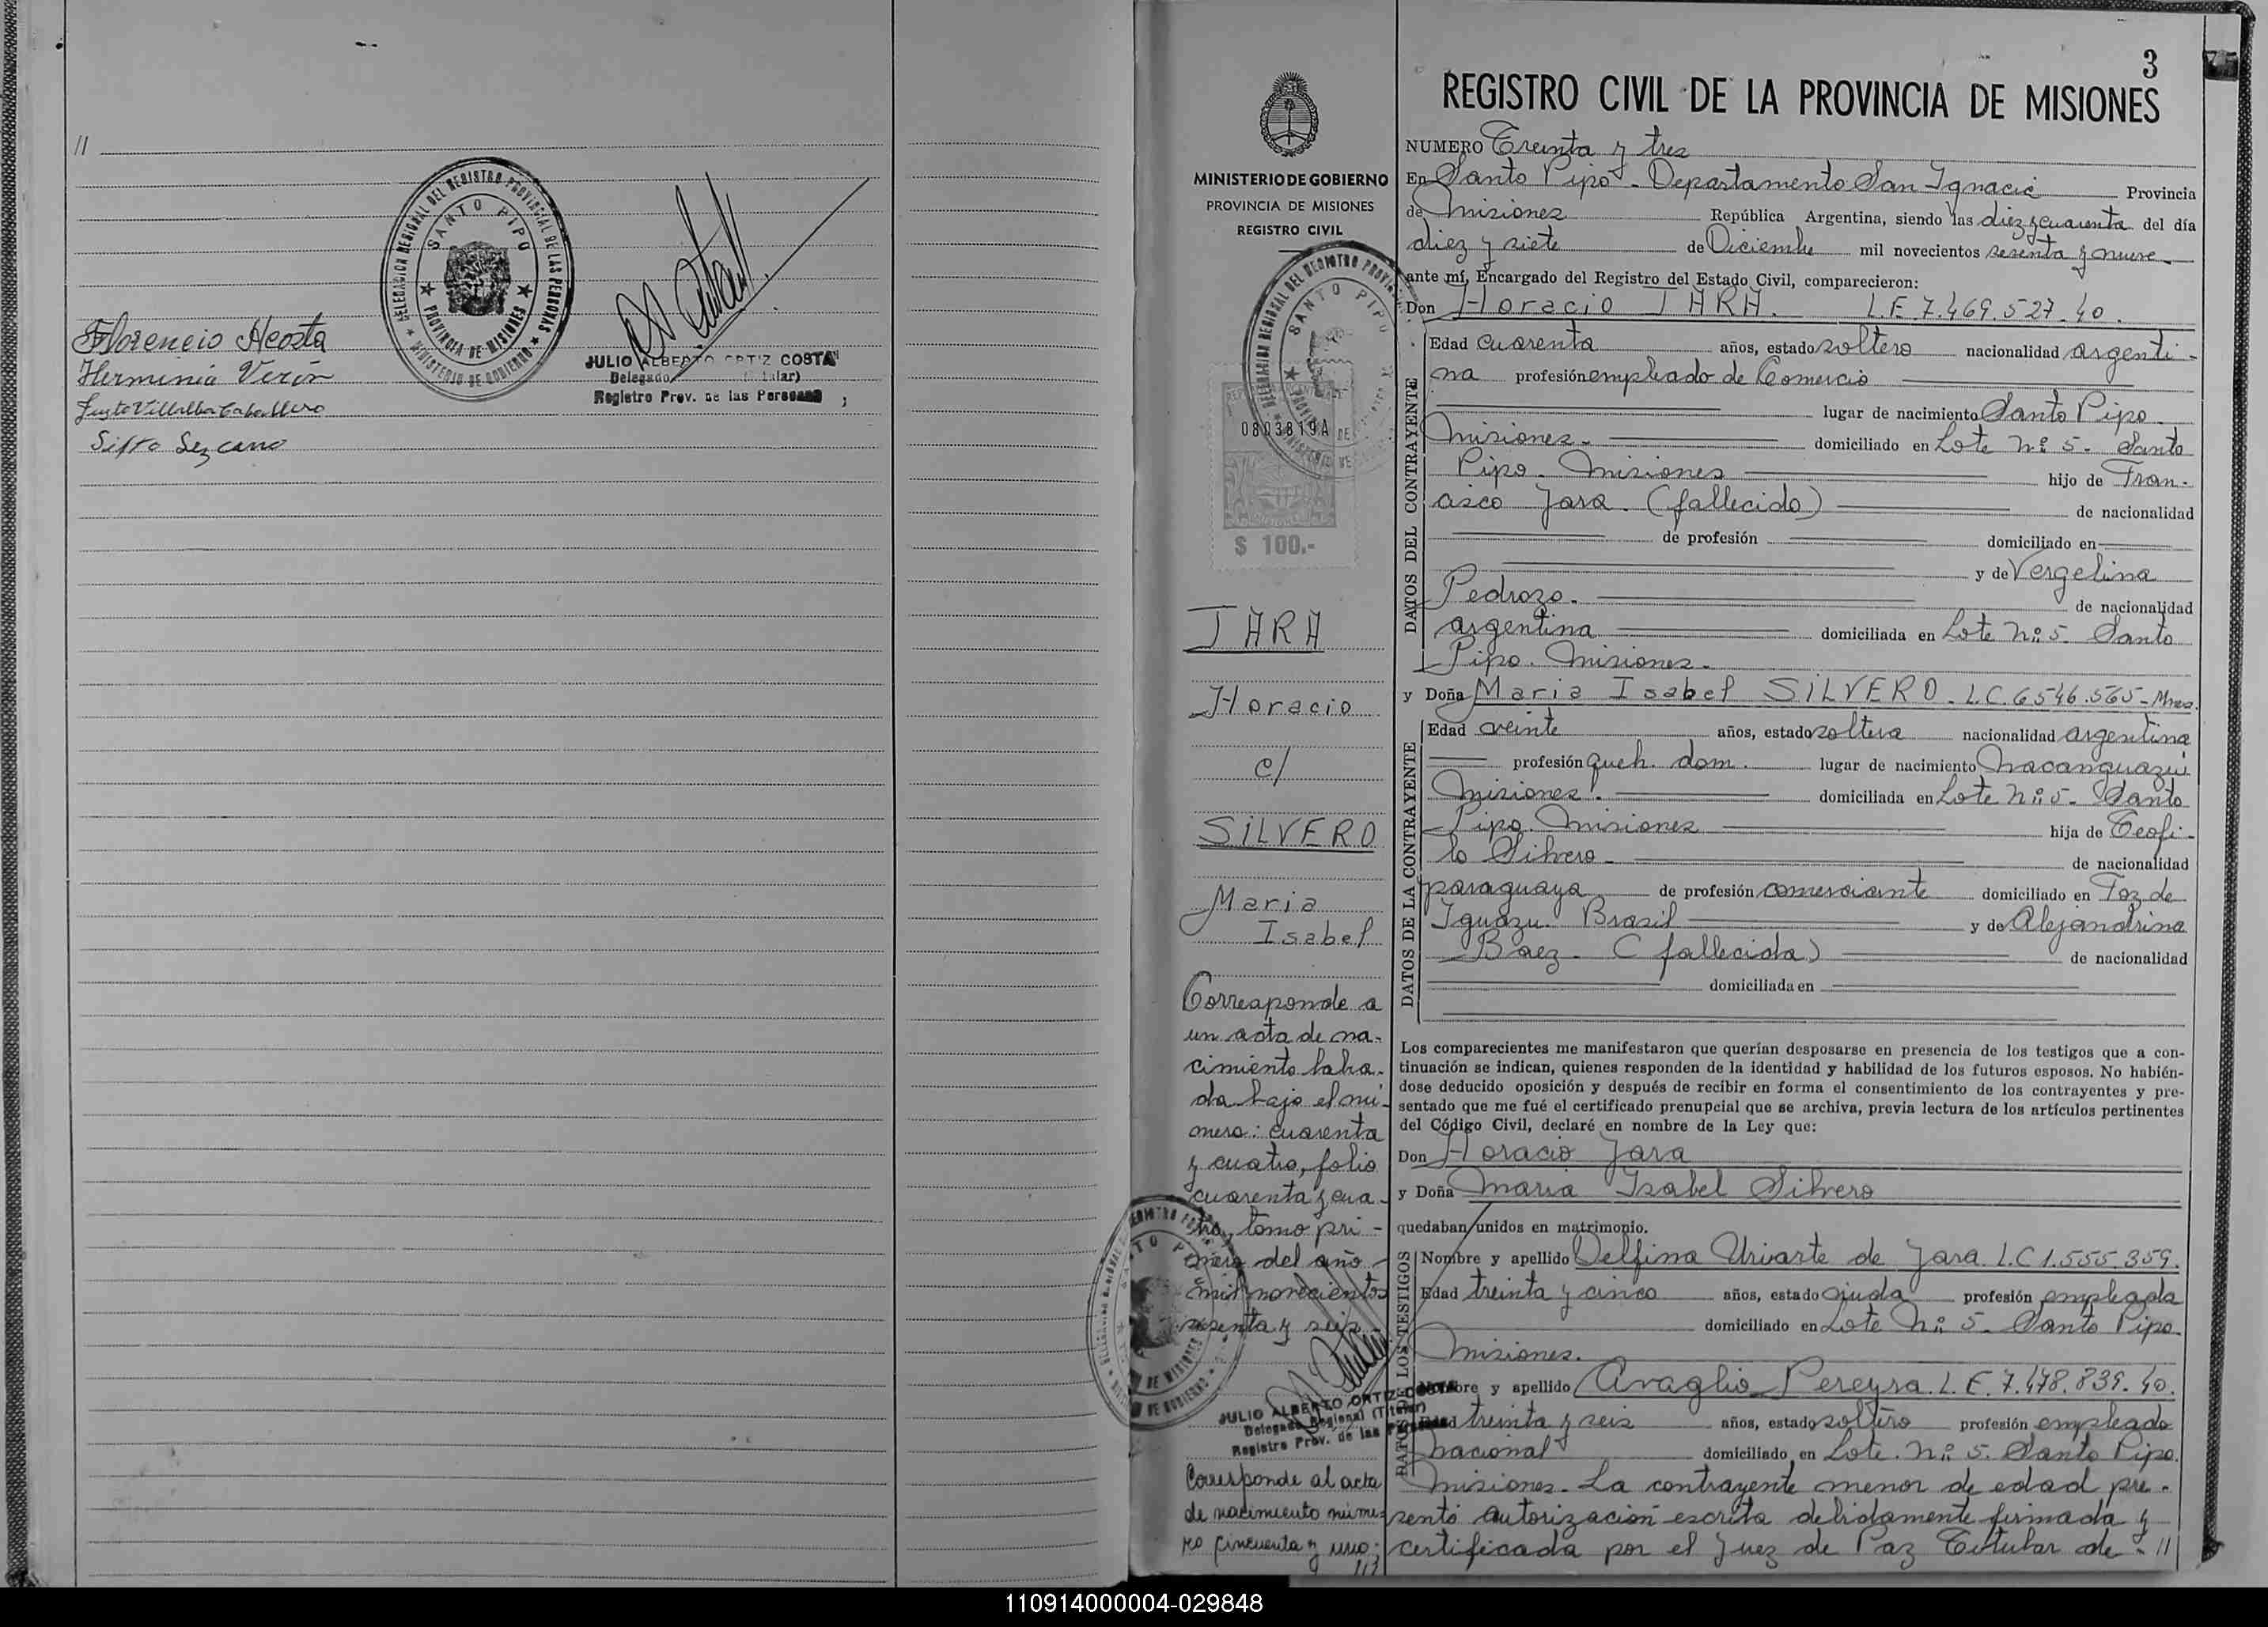 //
DELEGACION REGIONAL DEL REGISTRO PROVINCIAL DE LAS PERSONAS
SANTO PIPO
PROVINCIA DE MISIONES
MINISTERIO DE GOBIERNO
Florencio Acosta
Herminia Verón
Justo Villalba Caballero
Sixto Lezcano
JULIO ALBERTO ORTIZ COSTA
Delegado (Titular)
Registro Prov. de las Personas
3
MINISTERIO DE GOBIERNO
PROVINCIA DE MISIONES
REGISTRO CIVIL
0803819A
$ 100.-
JARA
Horacio
c/
SILVERO
Maria
Isabel
Corresponde a
un acta de na-
cimiento labra-
da bajo el nú-
mero: cuarenta
y cuatro, folio
cuarenta y cua-
tro, tomo pri-
mero del año
mil novecientos
sesenta y seis
JULIO ALBERTO ORTIZ COSTA
Delegado Regional (Titular)
Registro Prov. de las Personas
Corresponde al acta
de nacimiento núme-
ro cincuenta y uno;
///
REGISTRO CIVIL DE LA PROVINCIA DE MISIONES
NUMERO Treinta y tres
En Santo Pipó - Departamento San Ignacio Provincia
de Misiones República Argentina, siendo las diez y cuarenta del día
diez y siete de Diciembre mil novecientos sesenta y nueve
ante mí, Encargado del Registro del Estado Civil, comparecieron:
Don Horacio JARA. L.E. 7.469.527-40.
DATOS DEL CONTRAYENTE
Edad cuarenta años, estado soltero nacionalidad argenti-
na profesión empleado de Comercio
lugar de nacimiento Santo Pipo
Misiones - domiciliado en Lote Nº 5 - Santo
Pipo - Misiones hijo de Fran-
cisco Jara. (fallecido) de nacionalidad
de profesión domiciliado en
y de Vergelina
Pedrozo. de nacionalidad
argentina domiciliada en Lote Nº 5 - Santo
Pipo. Misiones.
y Doña Maria Isabel SILVERO - L.C. 6546.565 - Mnes.
DATOS DE LA CONTRAYENTE
Edad veinte años, estado soltera nacionalidad argentina
profesión queh. dom. lugar de nacimiento Ñacanguazú
Misiones. domiciliada en Lote Nº 5 - Santo
Pipo. Misiones hija de Teofi-
lo Silvero - de nacionalidad
paraguaya de profesión comerciante domiciliado en Foz de
Iguazu. Brasil y de Alejandrina
Baez - (fallecida) de nacionalidad
domiciliada en
Los comparecientes me manifestaron que querían desposarse en presencia de los testigos que a con-
tinuación se indican, quienes responden de la identidad y habilidad de los futuros esposos. No habién-
dose deducido oposición y después de recibir en forma el consentimiento de los contrayentes y pre-
sentado que me fué el certificado prenupcial que se archiva, previa lectura de los artículos pertinentes
del Código Civil, declaré en nombre de la Ley que:
Don Horacio Jara
y Doña Maria Isabel Silvero
quedaban unidos en matrimonio.
DATOS DE LOS TESTIGOS
Nombre y apellido Delfina Uriarte de Jara L.C 1.555.359.
Edad treinta y cinco años, estado viuda profesión empleada
domiciliado en Lote Nº 5 - Santo Pipo.
Misiones.
Nombre y apellido Avaglio Pereyra. L.E. 7.478.839-40.
Edad treinta y seis años, estado soltero profesión empleado
nacional domiciliado en Lote. Nº 5. Santo Pipo.
Misiones - La contrayente menor de edad pre-
sentó autorización escrita debidamente firmada y
certificada por el Juez de Paz Titular de - //
110914000004-029848